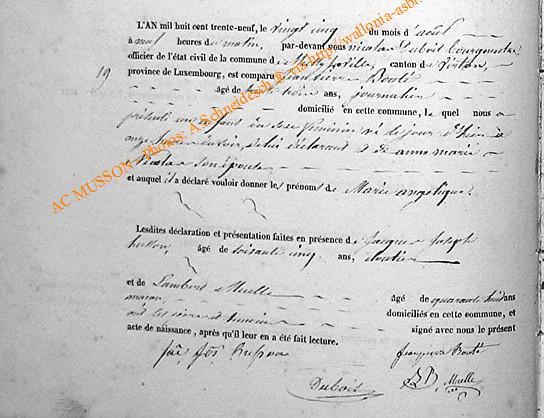 L'AN mil huit cent trente-neuf, le vingt cinq du mois d'août
à neuf heures du matin, par-devant nous nicolas Dubois Bourgmestre
officier de l'état civil de la commune de canton de Virton,
19
province de Luxembourg, est comparu Bouté
âgé de trois ans, journalier
domicilié en cette commune, le quel nous a
présenté un enfant du sexe féminin né le jour d'hier à
onze heures du soir, de lui déclarant & de anne marie
son épouse
et auquel il a déclaré vouloir donner les prénoms de Marie angelique.
Lesdites déclaration et présentation faites en présence de Jacques Joseph
husson, âgé de soixante cinq ans, cloutier
et de Lambert Muelle âgé de quarante huit ans
maçon, domiciliés en cette commune, et
ont les père et témoins signé avec nous le présent
acte de naissance, après qu'il leur en a été fait lecture.
Dubois
Muelle
AC MUSSON - photos: A.Schneidesch © via http://wallonia-asbl